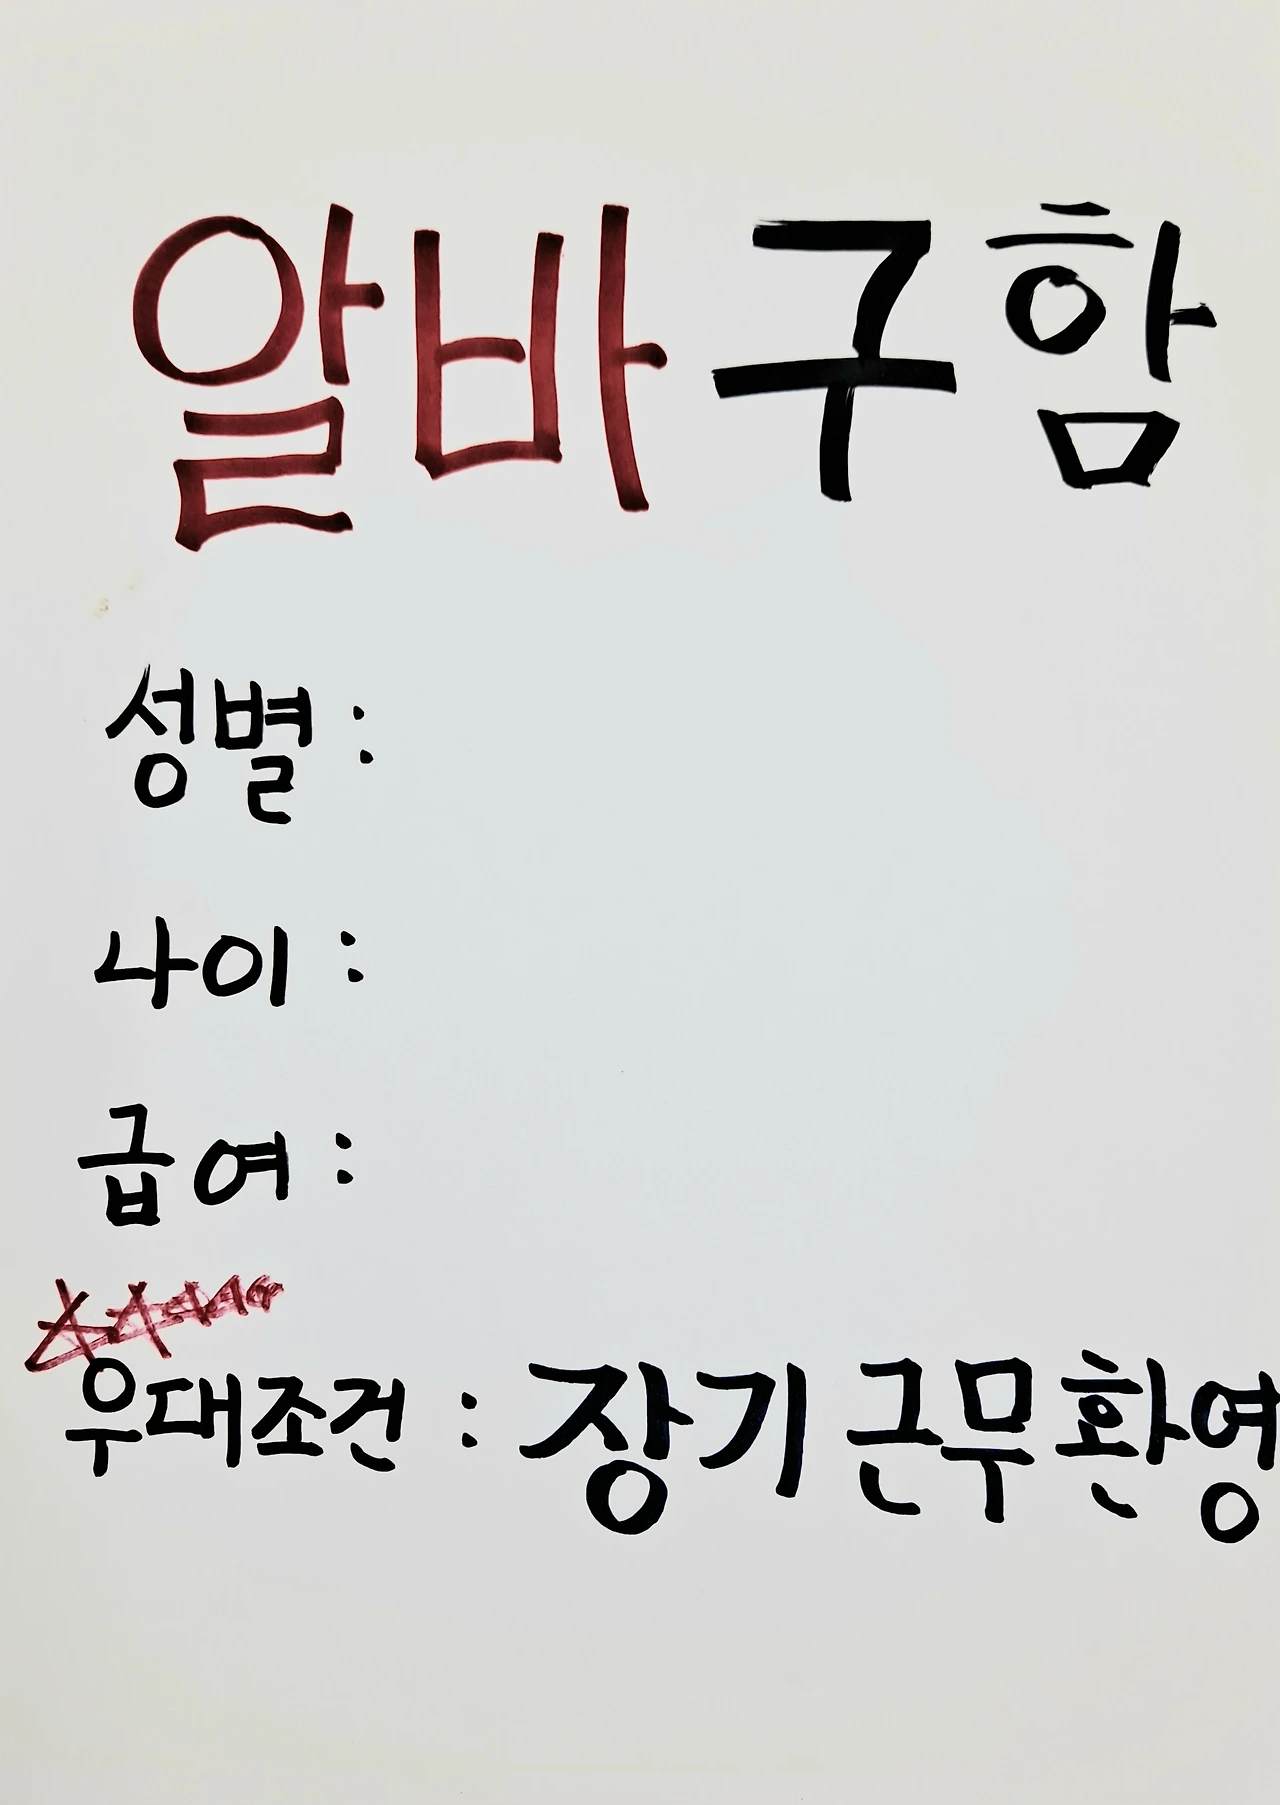 알바 구함
성별 :
나이 :
급여 :
우대조건 : 장기 근무 환영